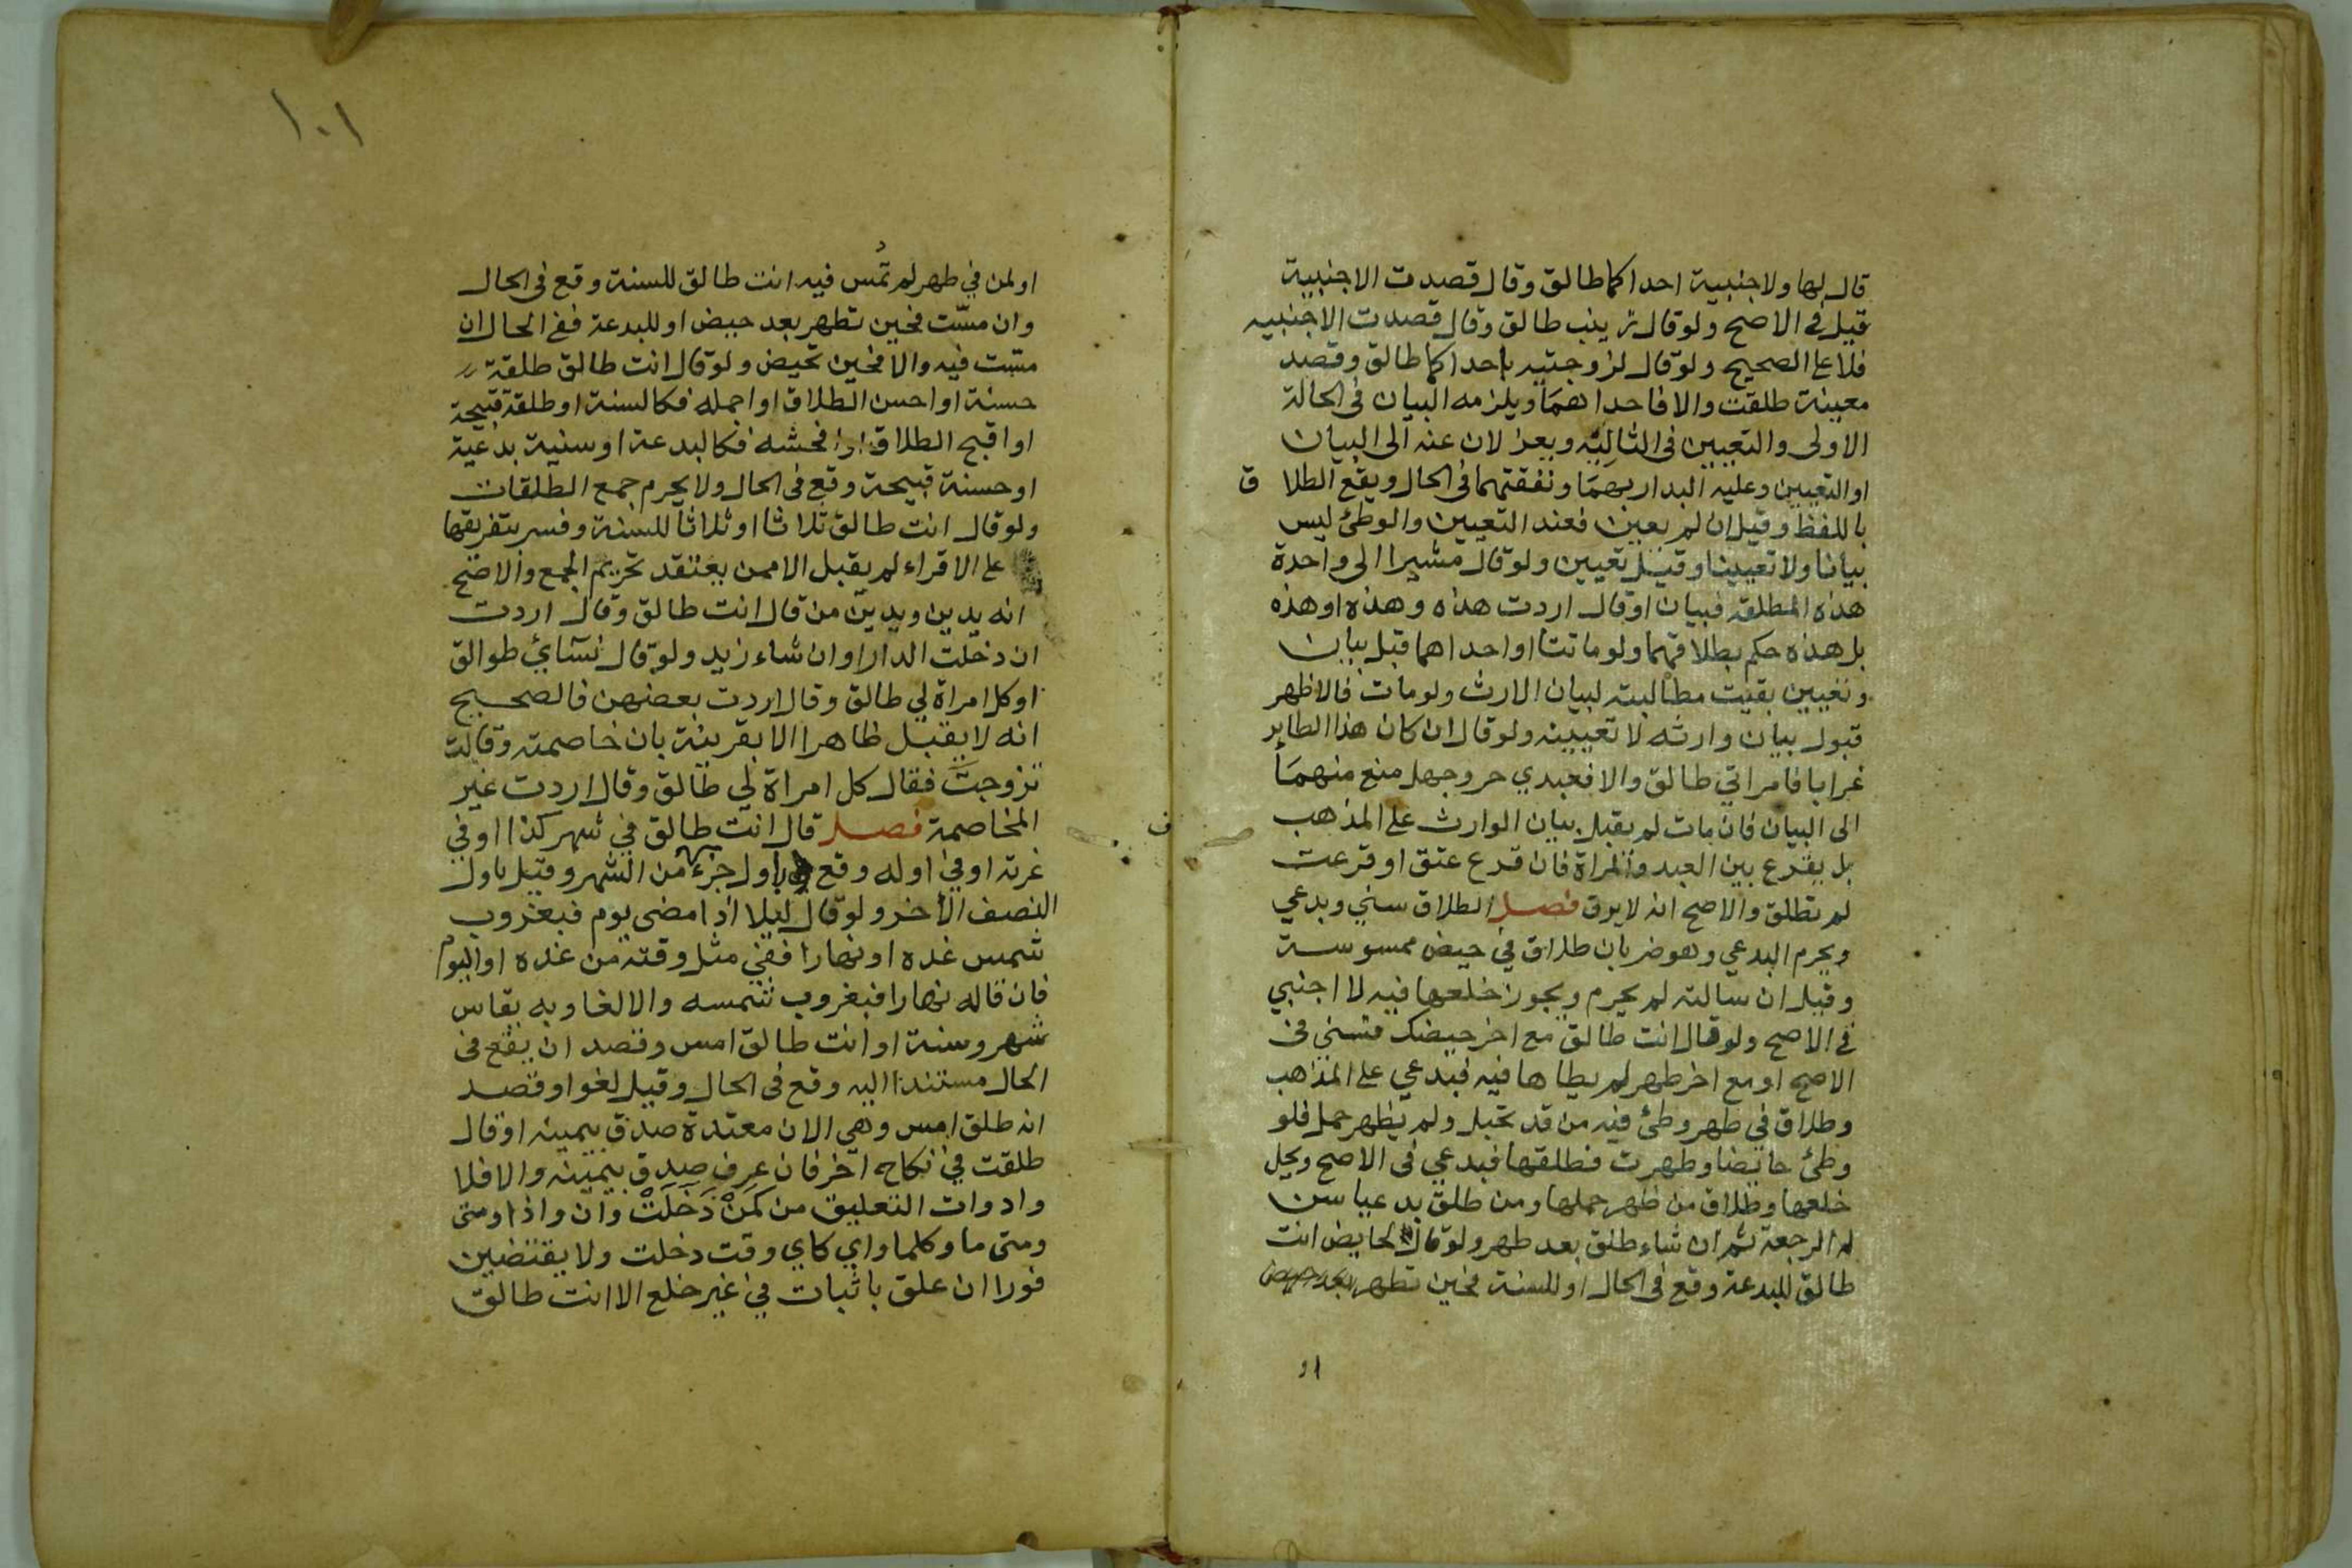 قال لها ولاجنبية احداكما طالق وقال قصدت الاجنبية
قبل في الاصح ولو قال زينب طالق وقال قصدت الاجنبيه
فلا على الصحيح ولو قال لزوجتيه احداكما طالق وقصد
معينة طلقت والا فاحداهما ويلزمه البيان في الحالة
الاولى والتعيين في الثانية ويعزلان عنه الى البيان
او التعيين وعليه البدار بهما ونفقتهما في الحال ويقع الطلاق
باللفظ وقيل ان لم يعين فعند التعيين والوطئ ليس
بيانا ولا تعيينا وقيل تعيين ولو قال مشيرا الى واحدة
هذه المطلقة فبيان او قال اردت هذه وهذه او هذه
بل هذه حكم بطلاقهما ولو ماتتا او احداهما قبل بيان
وتعيين بقيت مطالبته لبيان الارث ولو مات فالاظهر
قبول بيان وارثه لا تعيينه ولو قال ان كان هذا الطاير
غرابا فامراتي طالق والا فعبدي حر وجهل منع منهما
الى البيان فان مات لم يقبل بيان الوارث على المذهب
بل يقرع بين العبد والمراة فان قرع عتق او قرعت
لم تطلق والاصح انه لا يرق فصل الطلاق سني وبدعي
ويحرم البدعي وهو ضربان طلاق في حيض ممسوسة
وقيل ان سالته لم يحرم ويجوز خلعها فيه لا اجنبي
في الاصح ولو قال انت طالق مع اخر حيضك فسني في
الاصح او مع اخر طهر لم يطاها فيه فبدعي على المذهب
وطلاق في طهر وطئ فيه من قد تحبل ولم يظهر حمل فلو
وطئ حايضا وطهرت فطلقها فبدعي في الاصح ويحل
خلعها وطلاق من ظهر حملها ومن طلق بدعيا سن
له الرجعة ثم ان شاء طلق بعد طهر ولو قال لحايض انت
طالق للبدعة وقع في الحال او للسنة فحين تطهر
او
١٠١
او لمن في طهر لم تمس فيه انت طالق للسنة وقع في الحال
وان مست فحين تطهر بعد حيض او للبدعة ففي الحال ان
مست فيه والا فحين تحيض ولو قال انت طالق طلقة
حسنة او احسن الطلاق او اجمله فكالسنة او طلقة قبيحة
او اقبح الطلاق او افحشه فكالبدعة او سنية بدعية
او حسنة قبيحة وقع في الحال ولا يحرم جمع الطلقات
ولو قال انت طالق ثلاثا او ثلاثا للسنة وفسر بتفريقها
على الاقراء لم يقبل الا ممن يعتقد تحريم الجمع والاصح
انه يدين ويدين من قال انت طالق وقال اردت
ان دخلت الدار او ان شاء زيد ولو قال نسآئي طوالق
او كل امراة لي طالق وقال اردت بعضهن فالصحيح
انه لا يقبل ظاهرا الا بقرينة بان خاصمته وقالت
تزوجت فقال كل امراة لي طالق وقال اردت غير
المخاصمة فصل قال انت طالق في شهر كذا او في
غرته او في اوله وقع باول جزء من الشهر وقيل باول
النصف الاخر ولو قال ليلا اذا مضى يوم فبغروب
شمس غده او نهارا ففي مثل وقته من غده او اليوم
فان قاله نهارا فبغروب شمسه والا لغا وبه يقاس
شهر وسنة او انت طالق امس وقصد ان يقع في
الحال مستندا اليه وقع في الحال وقيل لغو او قصد
انه طلق امس وهي الان معتدة صدق بيمينه او قال
طلقت في نكاح آخر فان عرف صدق بيمينه والا فلا
وادوات التعليق من كَمَنْ دَخَلَتْ وان واذا ومتى
ومتى ما وكلما واي كاي وقت دخلت ولا يقتضين
فورا ان علق باثبات في غير خلع الا انت طالق